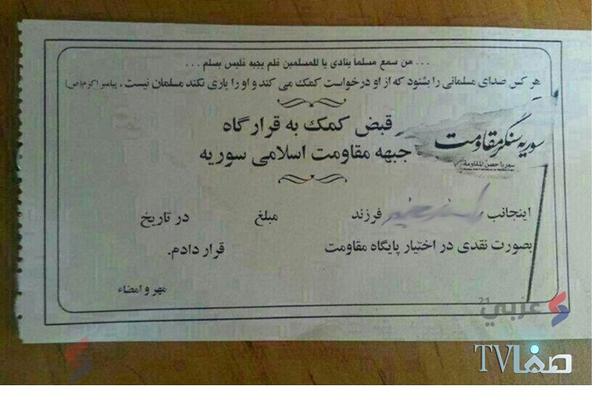 ... من سمع مسلماً ينادي يا للمسلمين فلم يجبه فليس بمسلم ...
هر کس صدای مسلمانی را بشنود که از او درخواست کمک می کند و او را یاری نکند مسلمان نیست. پیامبر اکرم(ص)
قبض کمک به قرارگاه
جبهه مقاومت اسلامی سوریه
سوریه سنگر مقاومت
سوريا حصن المقاومة
اینجانب فرزند مبلغ در تاریخ
بصورت نقدی در اختیار پایگاه مقاومت قرار دادم.
مهر و امضاء
عربي 21
صفا TV